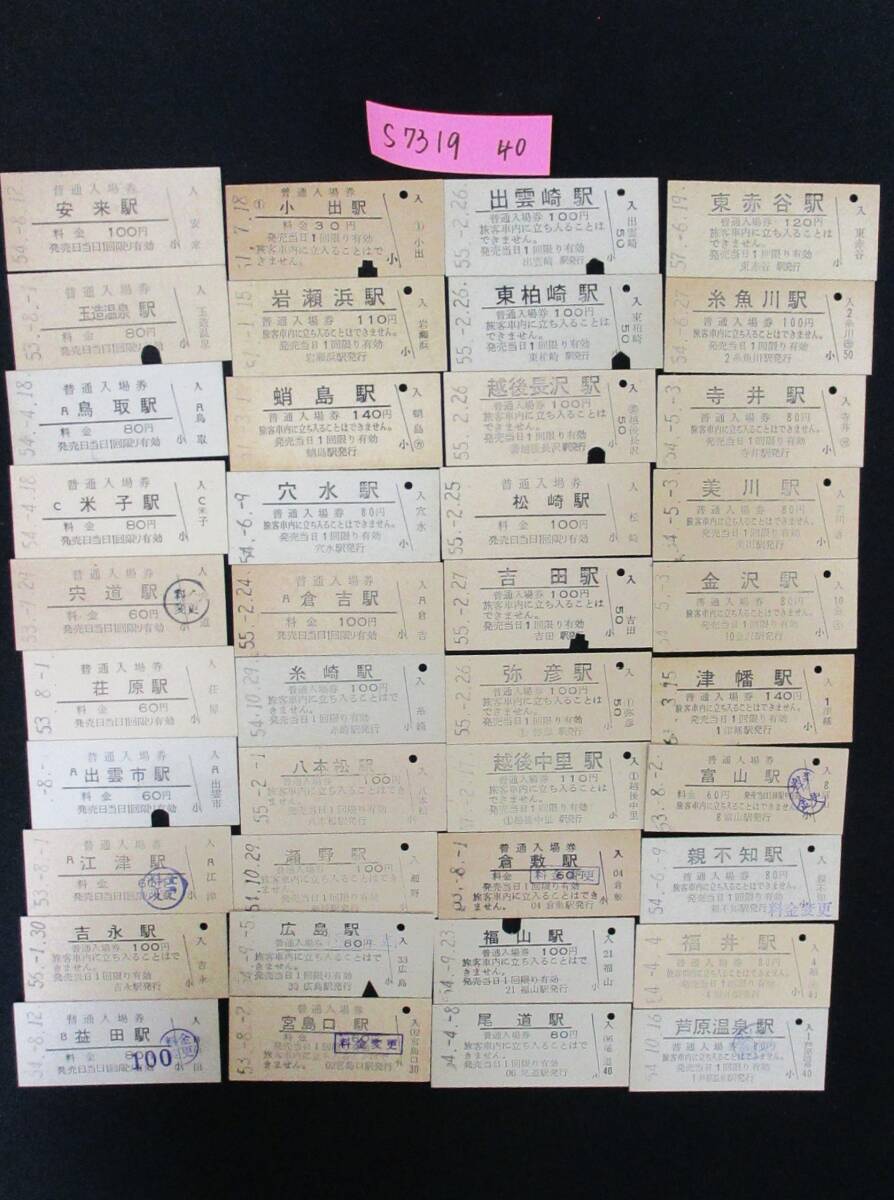 S7319 40
54.-8.12
普通入場券
安来駅
料金 100円
発売日当日1回限り有効 小
入 安来
53.-8.-1
普通入場券
玉造温泉駅
料金 80円
発売日当日1回限り有効 小
入 玉造温泉
54.-4.18
普通入場券
R鳥取駅
料金 80円
発売日当日1回限り有効 小
入 R鳥取
54.-4.18
普通入場券
C米子駅
料金 80円
発売日当日1回限り有効 小
入 C米子
普通入場券
宍道駅
料金 60円
発売日当日1回限り有効 小
53.-8.-1
普通入場券
荘原駅
料金 60円
発売日当日1回限り有効 小
入 荘原
普通入場券
R出雲市駅
料金 60円
発売日当日1回限り有効 小
入 R出雲市
53.-8.-1
普通入場券
R江津駅
料金
発売日当日1回限り有効 小
入 R江津
56.-1.30
吉永駅
普通入場券 100円
旅客車内に立ち入ることはできません。
発売当日1回限り有効
吉永駅発行 小
入 吉永
54.-8.12
普通入場券
B益田駅
料金
100
発売日当日1回限り有効 小
普通入場券
① 小出駅
料金 30円
発売当日1回限り有効
旅客車内に立ち入ることはで
きません。 小
入 ① 小出
岩瀬浜駅
普通入場券 110円
旅客車内に立ち入ることはできません。
発売当日1回限り有効
岩瀬浜駅発行 小
入 岩瀬浜
蛸島駅
普通入場券 140円
旅客車内に立ち入ることはできません。
発売当日1回限り有効
蛸島駅発行 小
入 蛸島
穴水駅
普通入場券 80円
旅客車内に立ち入ることはできません。
発売当日1回限り有効
穴水駅発行 小
入 穴水
55.-2.24
普通入場券
R倉吉駅
料金 100円
発売日当日1回限り有効 小
入 R倉吉
54.10.29
糸崎駅
普通入場券 100円
旅客車内に立ち入ることはで
きません。
発売当日1回限り有効
糸崎駅発行 小
入 糸崎
55.-2.-1
八本松駅
普通入場券 100円
旅客車内に立ち入ることはで
きません。
発売当日1回限り有効
八本松駅発行 小
入 八本松
54.10.29
瀬野駅
普通入場券 100円
旅客車内に立ち入ることはで
きません。
発売当日1回限り有効
瀬野駅発行 小
入 瀬野
広島駅
普通入場券 60円
旅客車内に立ち入ることはで
きません。
発売当日1回限り有効
33 広島駅発行 小
入 33 広島
53.-8.-2
普通入場券
宮島口駅
料金
料金変更
発売当日1回限り有効
旅客車内に立ち入ることはで
きません。
02宮島口駅発行 小
入 宮島口 30
55.-2.26
出雲崎駅
普通入場券 100円
旅客車内に立ち入ることは
できません。
発売当日1回限り有効
出雲崎 駅発行 小
入 出雲崎 50
55.-2.26
東柏崎駅
普通入場券 100円
旅客車内に立ち入ることは
できません。
発売当日1回限り有効
東柏崎 駅発行 小
入 東柏崎 50
55.-2.26
越後長沢駅
普通入場券 100円
旅客車内に立ち入ることは
できません。
発売当日1回限り有効
越後長沢駅発行 小
入 越後長沢 50
55.-2.25
普通入場券
松崎駅
料金 100円
発売日当日1回限り有効 小
入 松崎
55.-2.27
吉田駅
普通入場券 100円
旅客車内に立ち入ることは
できません。
発売当日1回限り有効
吉田 駅発行 小
入 吉田 50
55.-2.26
弥彦駅
普通入場券 100円
旅客車内に立ち入ることは
できません。
発売当日1回限り有効
① 弥彦 駅発行 小
入 ①弥彦 50
越後中里駅
普通入場券 110円
旅客車内に立ち入ることは
できません。
発売当日1回限り有効
①越後中里 駅発行 小
入 ①越後中里
53.-8.-1
普通入場券
倉敷駅
料金 60円
発売当日1回限り有効
旅客車内に立ち入ることはで
きません。
04 倉敷駅発行 小
入 04 倉敷
54.-9.23
福山駅
普通入場券 100円
旅客車内に立ち入ることはで
きません。
発売当日1回限り有効
21 福山駅発行 小
入 21 福山
54.-4.-8
尾道駅
普通入場券 80円
旅客車内に立ち入ることはで
きません。
発売当日1回限り有効
06 尾道駅発行 小
入 尾道 40
57.-6.19
東赤谷駅
普通入場券 120円
旅客車内に立ち入ることは
できません。
発売当日1回限り有効
東赤谷 駅発行 小
入 東赤谷
54.-6.27
糸魚川駅
普通入場券 100円
旅客車内に立ち入ることはできません。
発売当日1回限り有効
2糸魚川駅発行 小
入 2糸魚川 50
54.-5.-3
寺井駅
普通入場券 80円
旅客車内に立ち入ることはできません。
発売当日1回限り有効
寺井駅発行 小
入 寺井
54.-5.-3
美川駅
普通入場券 80円
旅客車内に立ち入ることはできません。
発売当日1回限り有効
美川駅発行 小
54.-5.-3
金沢駅
普通入場券 80円
旅客車内に立ち入ることはできません。
発売当日1回限り有効
10金沢駅発行 小
入 10金沢
津幡駅
普通入場券 140円
旅客車内に立ち入ることはできません。
発売当日1回限り有効
1津幡駅発行 小
入 1津幡
53.-8.-2
普通入場券
富山駅
料金 60円 発売当日1回限り有効
旅客車内に立ち入ることはできません。
8富山駅発行 小
54.-6.-9
親不知駅
普通入場券 80円
旅客車内に立ち入ることはできません。
発売当日1回限り有効
親不知駅発行 小
料金変更
入 親不知
54.-4.-4
福井駅
普通入場券 80円
旅客車内に立ち入ることはできません。
発売当日1回限り有効
4福井駅発行 小
入 4福井 41
54.10.16
芦原温泉駅
普通入場券
旅客車内に立ち入ることはできません。
発売当日1回限り有効
1芦原温泉駅発行 小
入 1芦原温泉 40